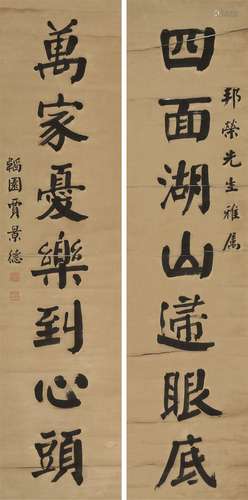 邦榮先生雅屬
四面湖山歸眼底
萬家憂樂到心頭
韜園賈景德